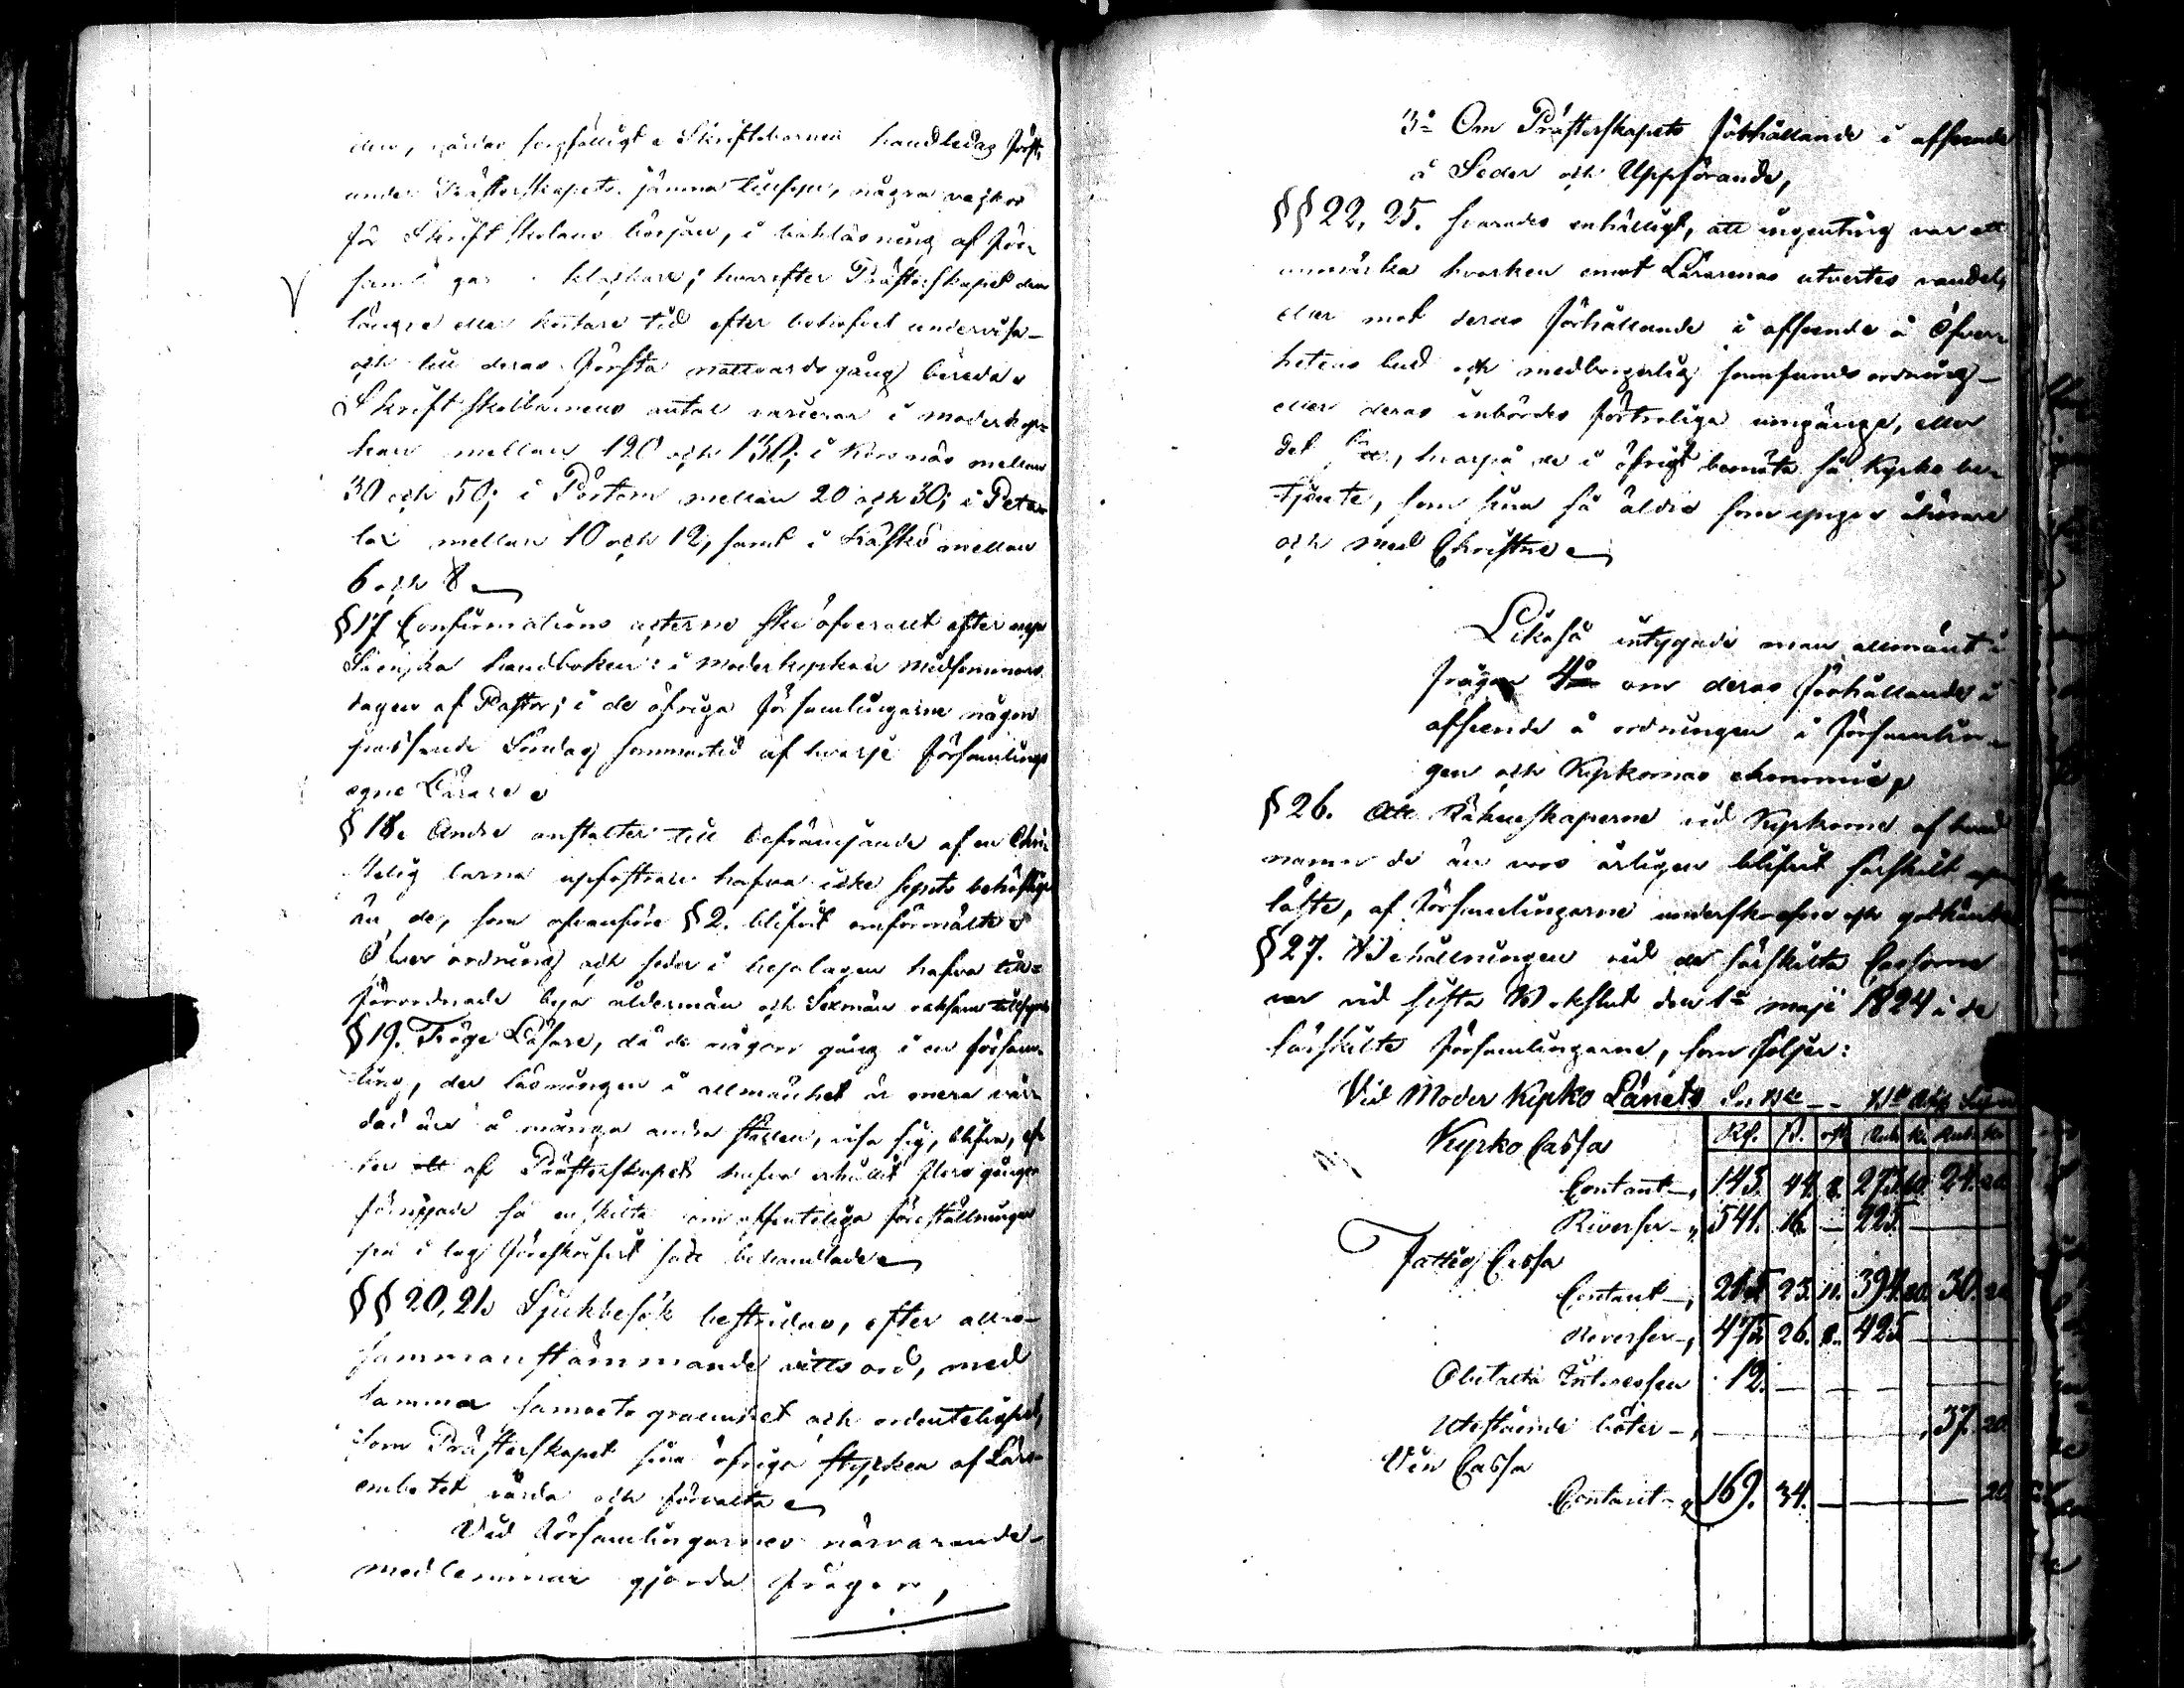 sorgfälligt Skriftebarnen handledas först,
under Prästerskapets jämna tillsyn, några veckor
för Skriftskolans början, i bokläsning af för-
klockare; hvarefter Prästerskapet dem
längre eller kortare tid efter behofvet undervisa
och till deras första nattvardsgång bereda.
Skriftskolbarnens antal varierar i moderkyr-
kan mellan 120 och 130; i Korsnäs mellan
30 och 50; i Pörtom mellan 20 och 30; i Peta-
lax mellan 10 och 12, samt i Kaskö mellan
6 och 8.
§ 17 Confirmations acterne ske öfverallt efter nya
Svenska handboken: i moderkyrkan midsommars
dagen af Pastor; i de öfriga församlingarne någon
passande Söndag sommartid af hvarje församlings
egne Lärare.
§ 18. Andre anstalter till befrämjande af en Chri-
stelig barna upfostran hafva icke synts behöflige
än de, som ofvanföre § 2. blifvit omförmälte.
Öfver ordning och seder i byalagen hafva till-
förordnade bya åldermän och Sexmän vaksam tillsyn.
§ 19. Tröge Läsare, då de någon gång i en försam-
ling, der läsningen i allmänhet är mera vår-
dad än å många andra ställen, visa sig, blifva, ef-
ter ett af Prästerskapet hafva erhållit flera gånger
förnyade så enskilta som offenteliga föreställningar
på i lag föreskrifvit sätt behandlade.
§§ 20, 21. Sjukbesök bestridas, efter allas
sammanstämmande vitts ord, med
samma samvets grannhet och ordentelighet,
som Prästerskapet sina öfriga stycken af Läro-
embetet vårda och förvalta.
Vid Församlingarnes närvarande
medlemmar gjorda frågor,
3:o Om Prästerskapets förhållande i afseende
å Seder och Uppförande,
§§ 22, 25. svarades enhälligt, att ingenting var att
anmärka hvarken emot Lärarenas utvertes vandel,
eller mot deras förhållande i afseende å Öfver-
hetens bud och medborgerlig samfunds ordning
eller deras inbördes förtroliga umgänge, eller
det sätt, hvarpå de i öfrigt bemöta så Kyrko be-
tjente, som sina så äldre som yngre åhörare
och med Christne.
Likaså intygade man allmänt i
frågan 4:o om deras förhållande i
afseende å ordningen i Församlin-
gen och Kyrkornas ekonomie,
§ 26. Att Räkneskaperne vid Kyrkorne af hvad
namn de än vore årligen blifvit särskilt upp-
läste, af Församlingarne underskrefne och godkände
§ 27. Behållningen vid de särskilta Cassorne
var vid sista Bokslut den 1:a maji 1824 i de
särskilte församlingarne, som följer:
Vid Moder Kyrko Länets
Kyrko Cassa
Contant 143. 44. 8. 24. 20.
Reverser 541. 16. — 225. —
Fattig Cassa
Contant 23. 11. 394. 20. 30.
Reverser 475 26. 8. 425 —
Obetalta Interessen 12. —
Utestående böter — 37. 20
Vin Cassa
Contant 169. 34. — 20